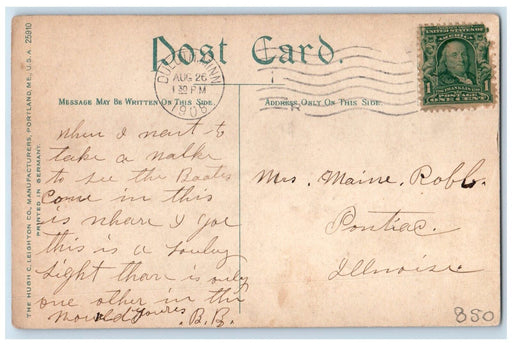 Post Card.
DULUTH, MINN
AUG 26
1 30 PM
1908
UNITED STATES OF AMERICA
FRANKLIN
1 POSTAGE 1
ONE CENT
MESSAGE MAY BE WRITTEN ON THIS SIDE.
ADDRESS ONLY ON THIS SIDE.
THE HUGH C. LEIGHTON CO., MANUFACTURERS, PORTLAND, ME., U.S.A. 25910
PRINTED IN GERMANY.
when I want to
take a walke
to see the Boates
Come in this
is whare I goe
this is a lovley
Sight thare is only
one other in the
world yours B.B.
Mrs. Maine. Robb.
Pontiac.
Illnoise
850